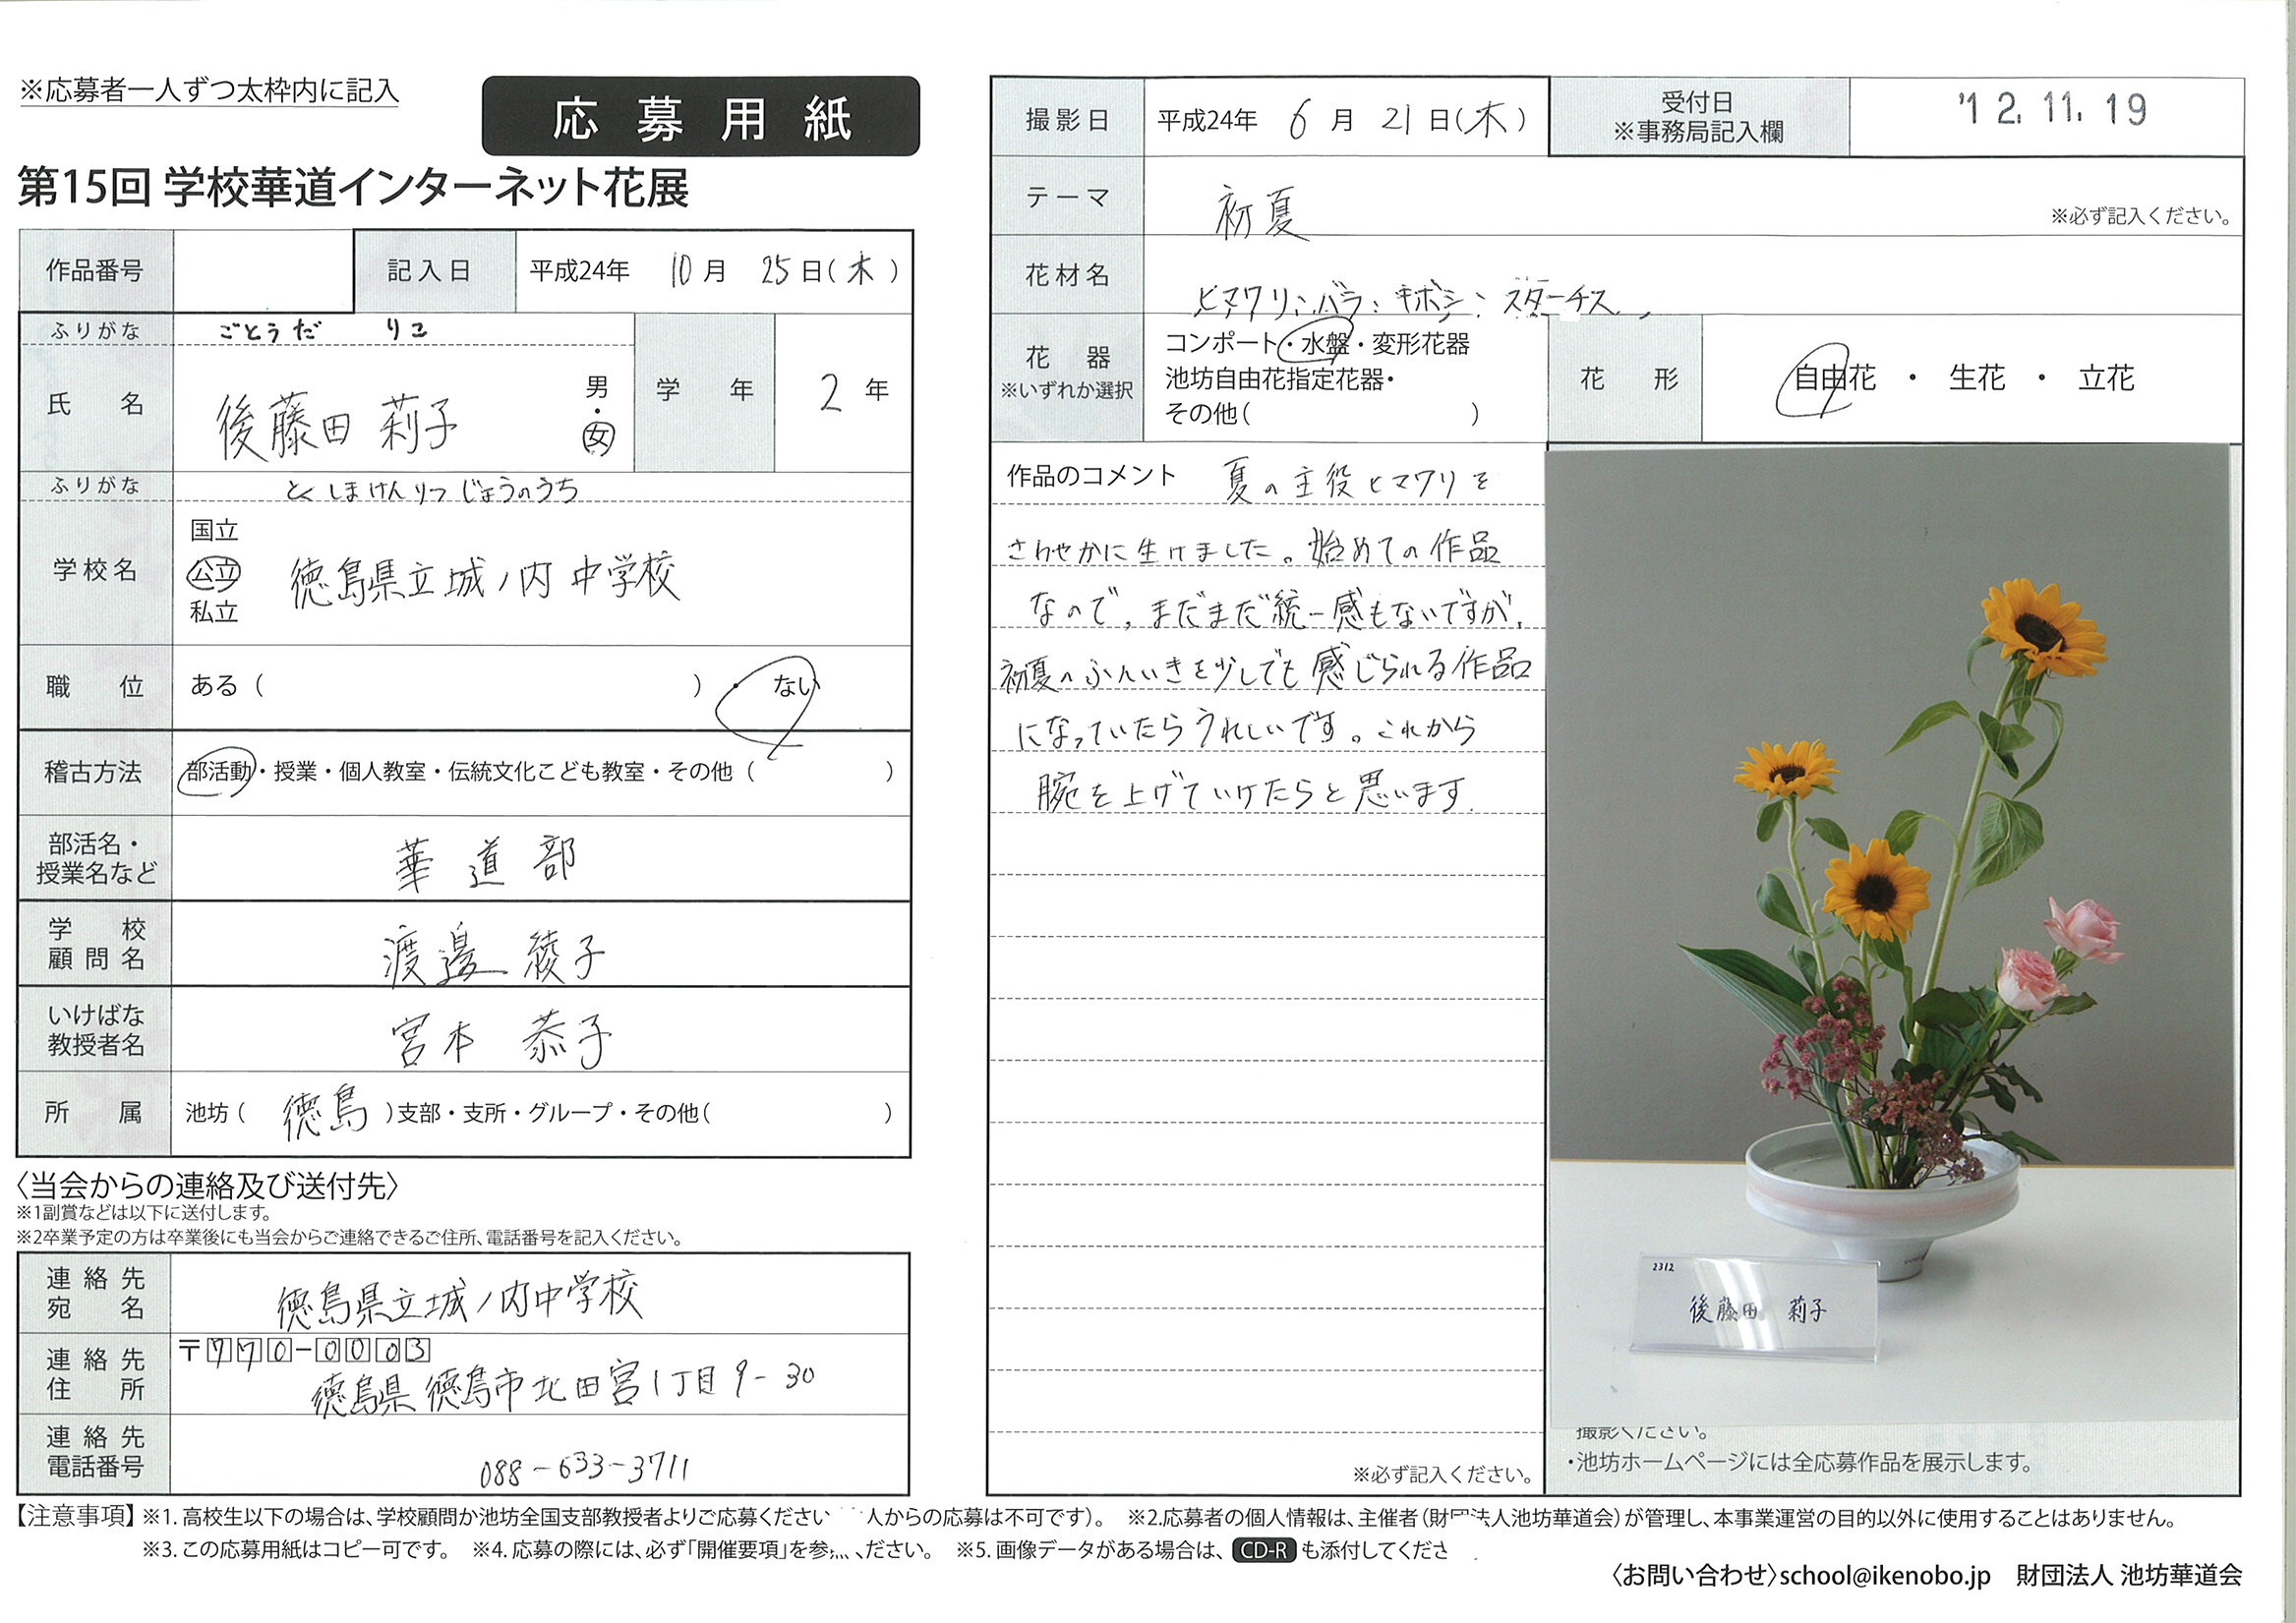 ※応募者一人ずつ太枠内に記入
応募用紙
第15回 学校華道インターネット花展
作品番号
記入日 平成24年 10月 25日(木)
ふりがな ごとうだ りこ
氏名 後藤田 莉子 男・女
学年 2年
ふりがな とくしまけんりつ じょうのうち
学校名 国立 公立 私立 徳島県立城ノ内中学校
職位 ある( )・ ない
稽古方法 部活動・授業・個人教室・伝統文化こども教室・その他( )
部活名・授業名など 華道部
学校顧問名 渡邊 綾子
いけばな教授者名 宮本 恭子
所属 池坊( 徳島 )支部・支所・グループ・その他( )
〈当会からの連絡及び送付先〉
※1副賞などは以下に送付します。
※2卒業予定の方は卒業後にも当会からご連絡できるご住所、電話番号を記入ください。
連絡先宛名 徳島県立城ノ内中学校
連絡先住所 〒770-0003
徳島県徳島市北田宮1丁目9-30
連絡先電話番号 088-633-3711
撮影日 平成24年 6月 21日(木)
受付日 ※事務局記入欄 '12.11.19
テーマ 初夏 ※必ず記入ください。
花材名 ヒマワリ:バラ:ギボシ:スターチス
花器 ※いずれか選択
コンポート・水盤・変形花器
池坊自由花指定花器・
その他( )
花形 自由花 ・ 生花 ・ 立花
作品のコメント 夏の主役ヒマワリを
さわやかに生けました。始めての作品
なので、まだまだ統一感もないですが、
初夏のふんいきを少しでも感じられる作品
になっていたらうれしいです。これから
腕を上げていけたらと思います.
※必ず記入ください。
2312
後藤田 莉子
撮影ください。
・池坊ホームページには全応募作品を展示します。
【注意事項】※1.高校生以下の場合は、学校顧問か池坊全国支部教授者よりご応募ください 人からの応募は不可です)。 ※2.応募者の個人情報は、主催者(財団法人池坊華道会)が管理し、本事業運営の目的以外に使用することはありません。
※3.この応募用紙はコピー可です。 ※4.応募の際には、必ず「開催要項」を参 ください。 ※5.画像データがある場合は、CD-Rも添付してくださ
〈お問い合わせ〉school@ikenobo.jp 財団法人 池坊華道会